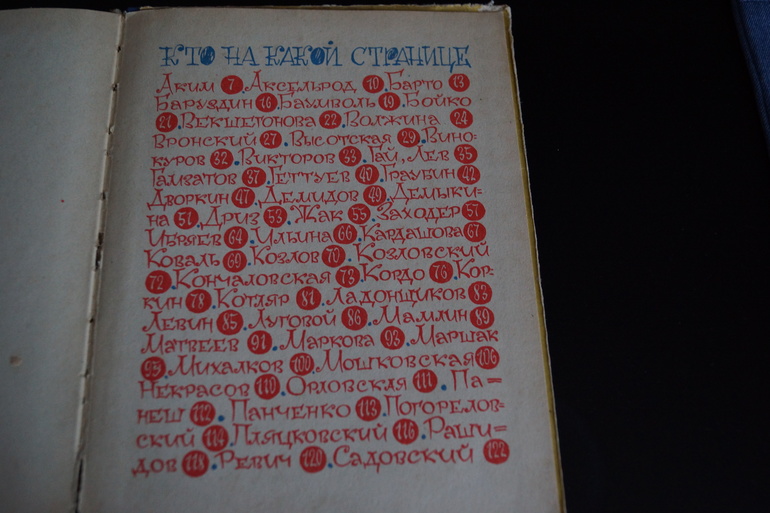 КТО НА КАКОЙ СТРАНИЦЕ
Аким 7. Аксельрод 10. Барто 13
Баруздин 16. Бахиволь 19. Бойко
21. Векшегонова 22. Волжина 24
Вронский 27. Высотская 29. Вино-
куров 32. Викторов 33. Гай, Лев 35
Гамзатов 37. Геттуев 40. Граубин 42
Дворкин 47. Демидов 49. Демыки-
на 51. Дриз 53. Жак 55. Заходер 57
Ибряев 64. Ильина 66. Кардашова 67
Коваль 69. Козлов 70. Козловский
72. Кончаловская 73. Кордо 76. Кор-
кин 78. Котляр 81. Ладонщиков 83
Левин 85. Луговой 86. Мамлин 89
Матвеев 91. Маркова 93. Маршак
95. Михалков 100. Мошковская 106
Некрасов 110. Орловская 111. Па=
неш 112. Панченко 113. Погорелов-
ский 114. Пляцковский 116. Раши=
дов 118. Ревич 120. Садовский 122